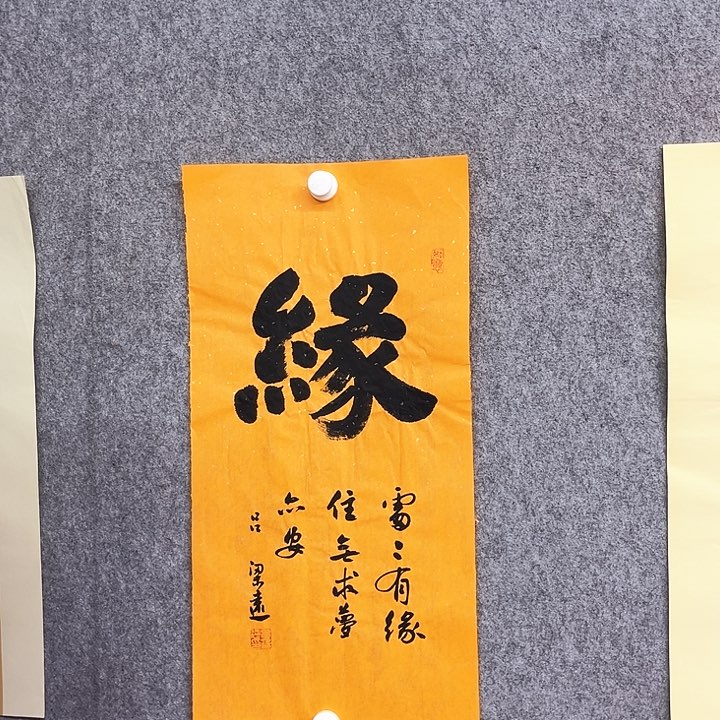 緣
有緣
住無求夢
亦安
呂 梁遠